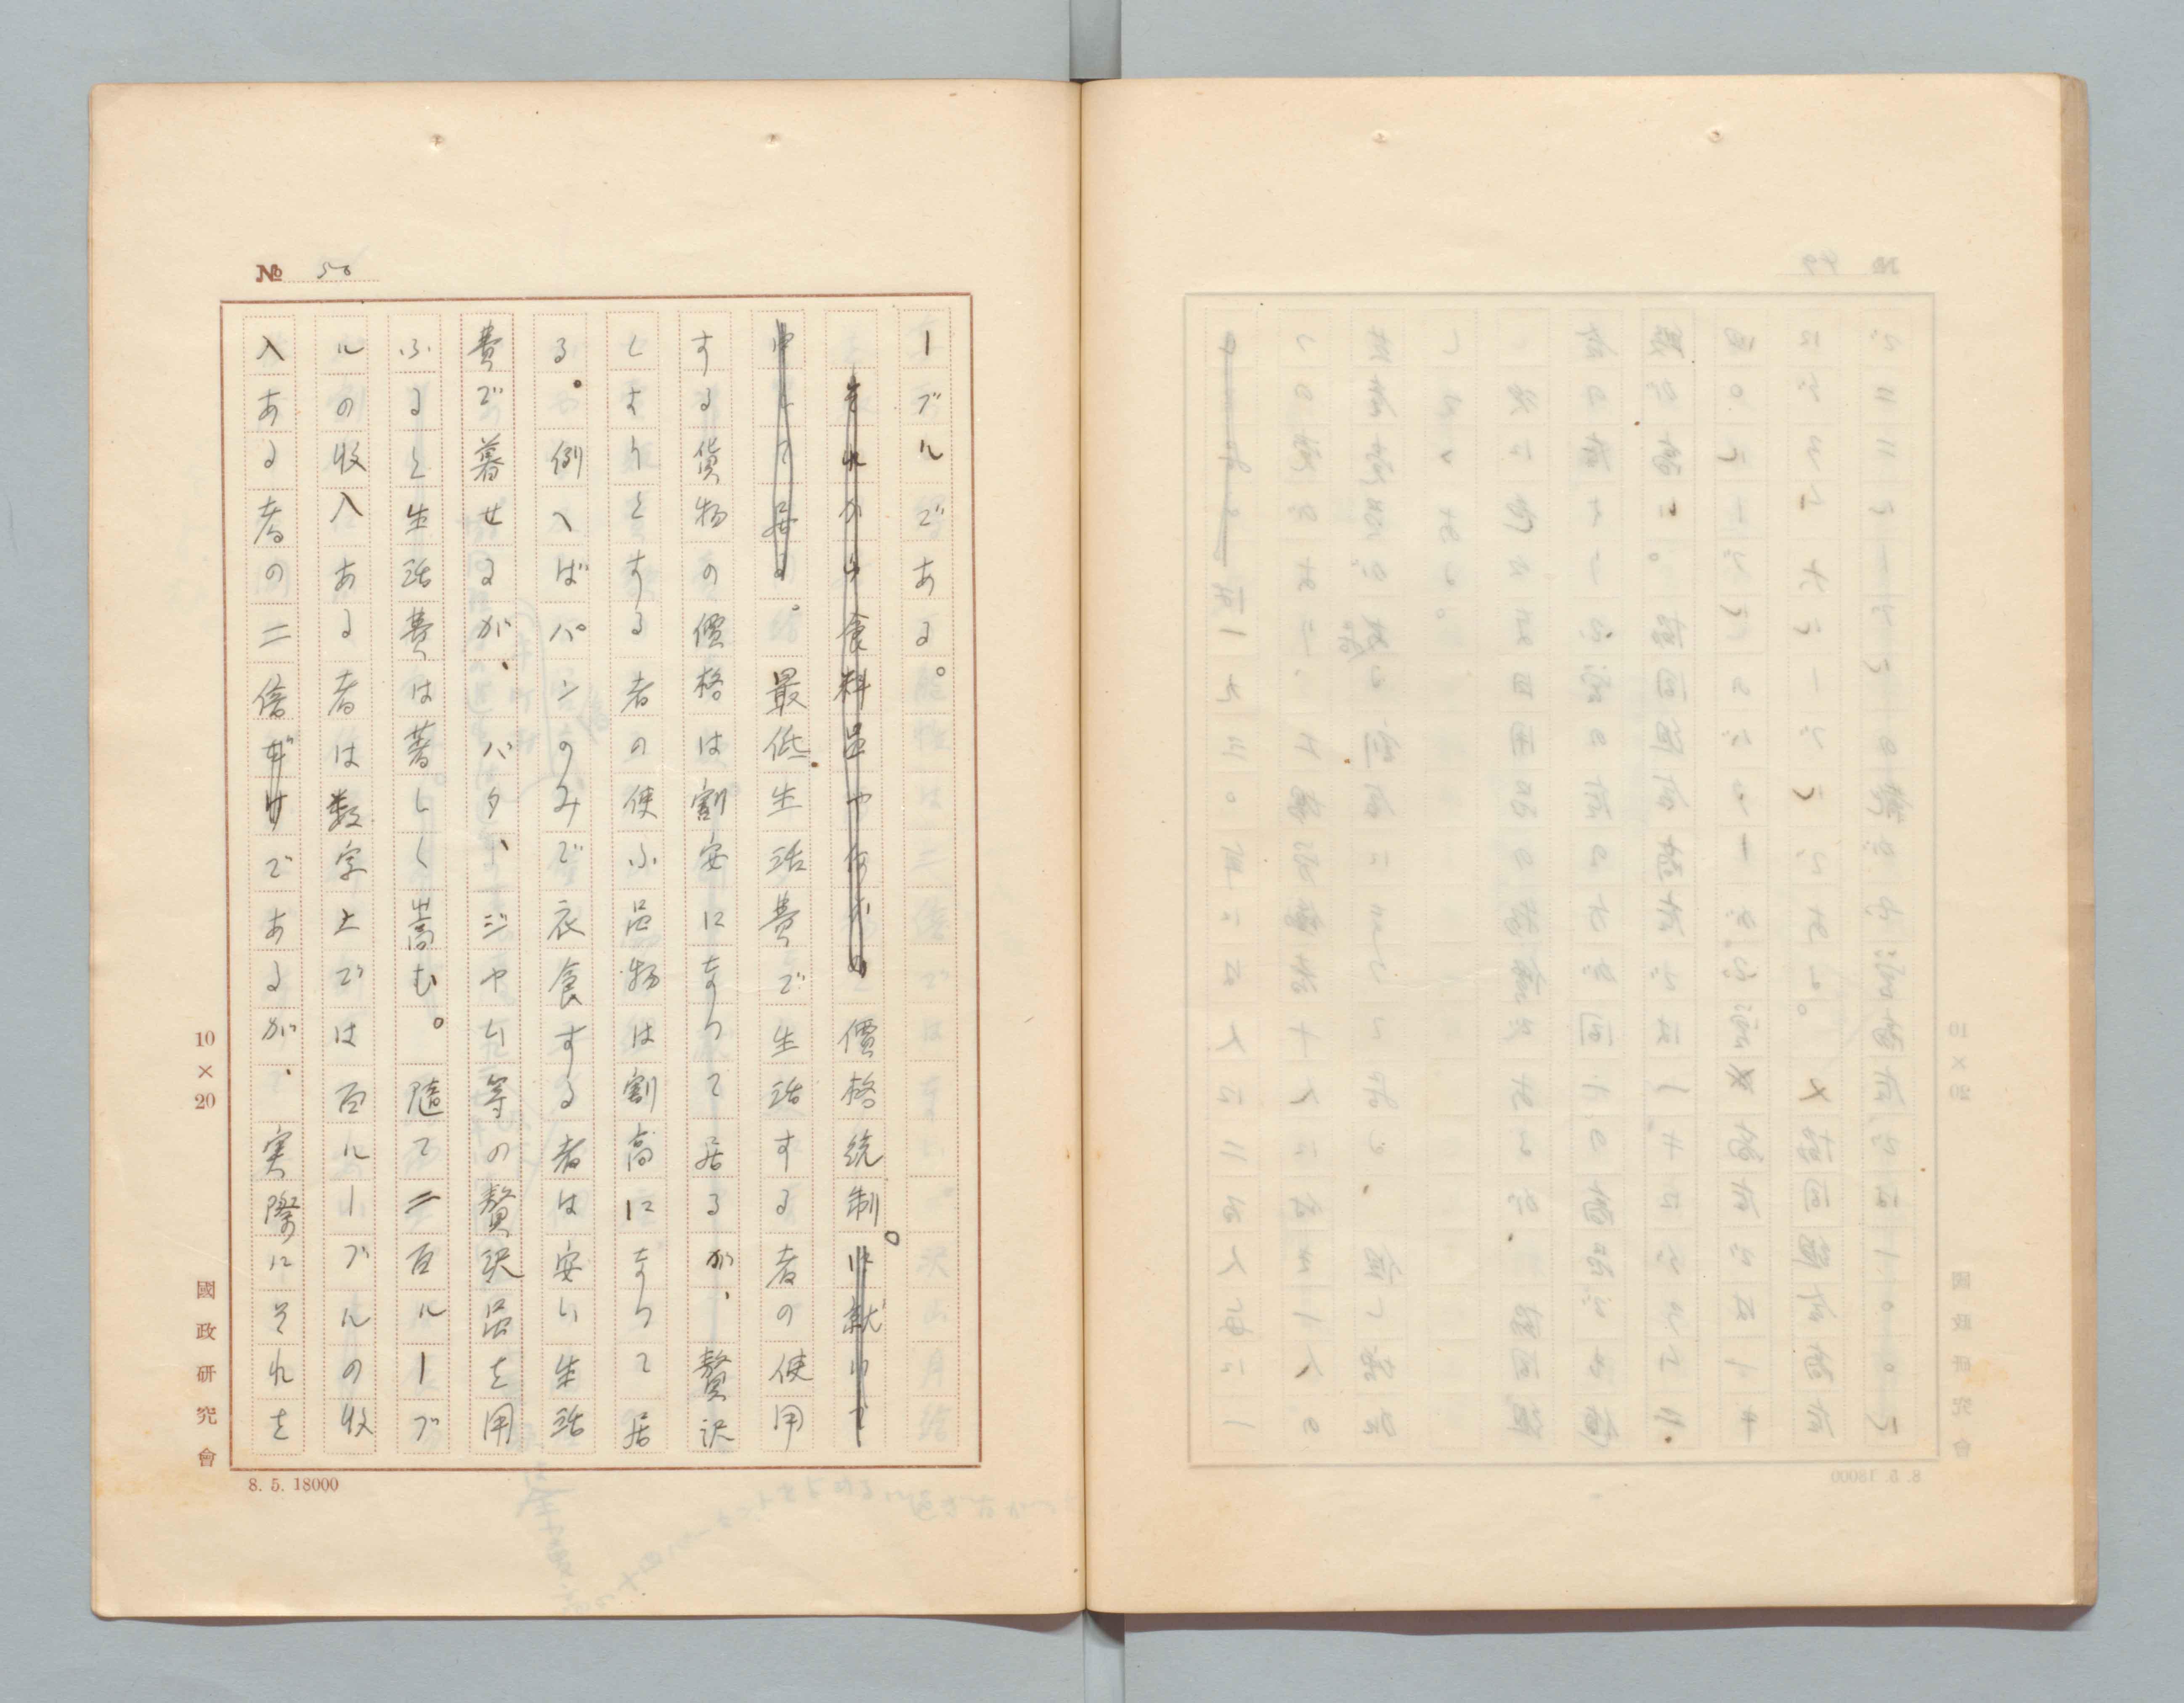 № 50
ーブルである。
それから食料品や何かの 價格統制。に就いて
申して居る。最低生活費で生活する者の使用
する貨物の價格は割安になって居るが、贅沢
しようとする者の使ふ品物は割高になって居
る。例へばパンのみで衣食する者は安い生活
費で暮せるが、バタ、ジャム等の贅沢品を用
ふると生活費は著しく嵩む。隨て二百ルーブ
ルの收入ある者は数字上では百ルーブルの收
入ある者の二倍であるが、実際にそれを
10×20
國政研究會
8. 5. 18000